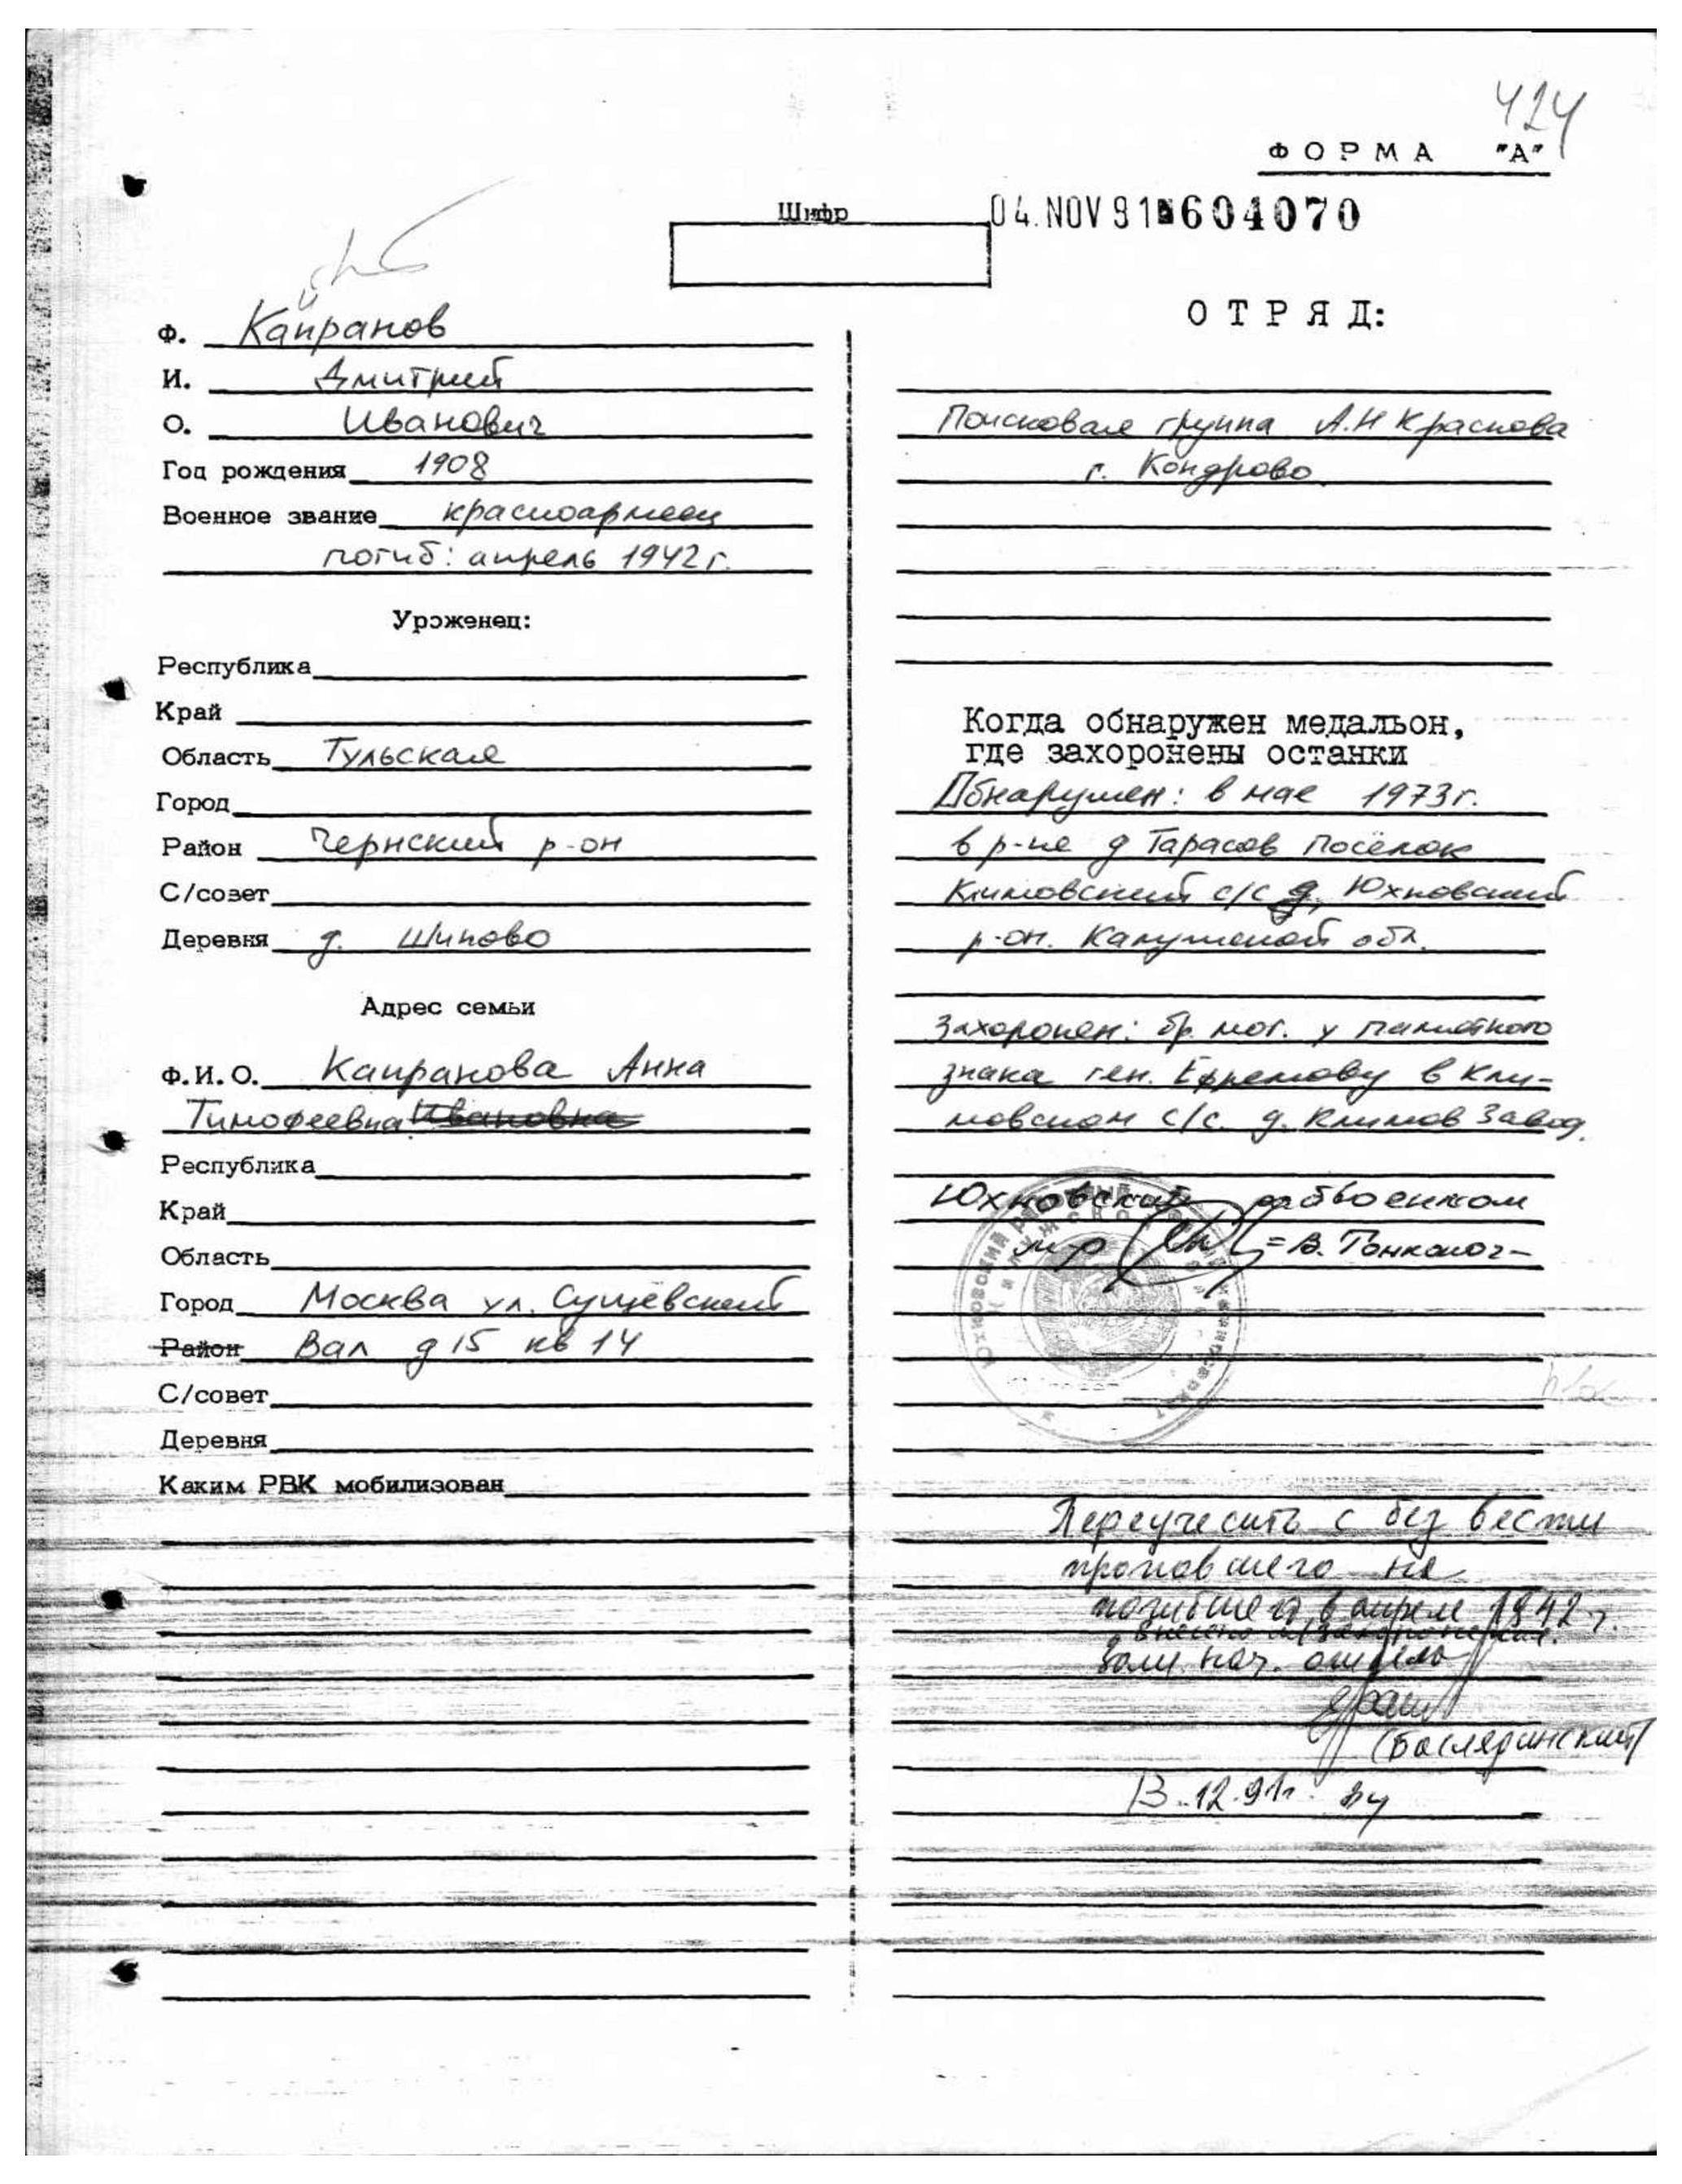 424
ФОРМА "А"
Шифр
04.NOV 91 604070
ОТРЯД:
Ф. Капранов
И. Дмитрий
О. Иванович
Год рождения 1908
Военное звание красноармеец
погиб: апрель 1942 г.
Уроженец:
Республика
Край
Область Тульская
Город
Район Чернский р-он
С/совет
Деревня д. Шипово
Адрес семьи
Ф.И.О. Капранова Анна
Тимофеевна Ивановна
Республика
Край
Область
Город Москва ул. Сущёвский
Район Вал д 15 кв 14
С/совет
Деревня
Каким РВК мобилизован
Поисковая группа А.Н Краснова
г. Кондрово
Когда обнаружен медальон,
где захоронены останки
Обнаружен: в мае 1973г.
в р-не д Тарасов посёлок
Климовский с/с д, Юхновский
р-он. Калужской обл.
Захоронен: бр. мог. у памятного
знака ген. Ефремову в Кли-
мовском с/с. д. Климов Завод.
Юхновский райвоенком
м-р = В.
Переучесть с без вести
пропавшего на
погибшего в апреле 1942 г.
Зам. нач. отдела
(Баслядинский)
13.12.91г.